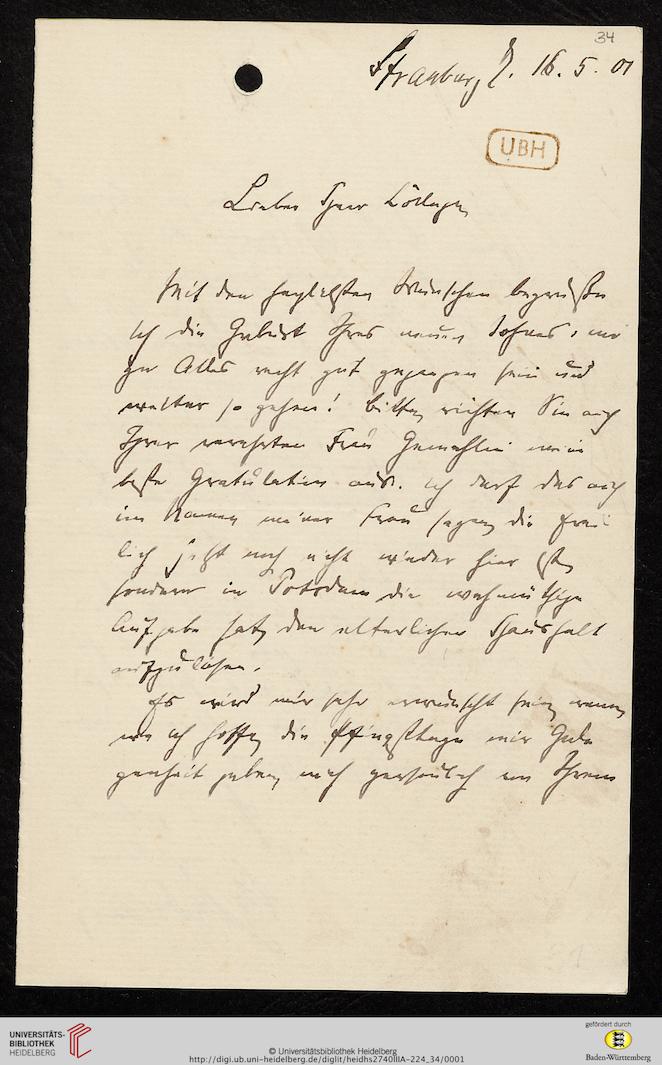 34
Strassburg 16. 5. 01
UBH
Lieber Herr College,
Mit den herzlichsten Wünschen begrüße
ich die Geburt Ihres neuen Sohnes,
Alles recht gut gegangen sein und
weiter so gehen! Bitte, richten Sie auch
Ihrer verehrten Frau Gemahlin meine
beste Gratulation aus. Ich darf das auch
im Namen meiner Frau sagen, die frei-
lich jetzt noch nicht wieder hier ist,
sondern in Potsdam die wehmüthige
Aufgabe hat, den elterlichen Haushalt
aufzulösen.
Es wird mir sehr erwünscht sein, wenn,
wie ich hoffe, die Pfingsttage mir Gele-
genheit geben, mich persönlich von Ihrem
UNIVERSITÄTS-
BIBLIOTHEK
HEIDELBERG
© Universitätsbibliothek Heidelberg
http://digi.ub.uni-heidelberg.de/diglit/heidhs2740IIIA-224_34/0001
gefördert durch
Baden-Württemberg